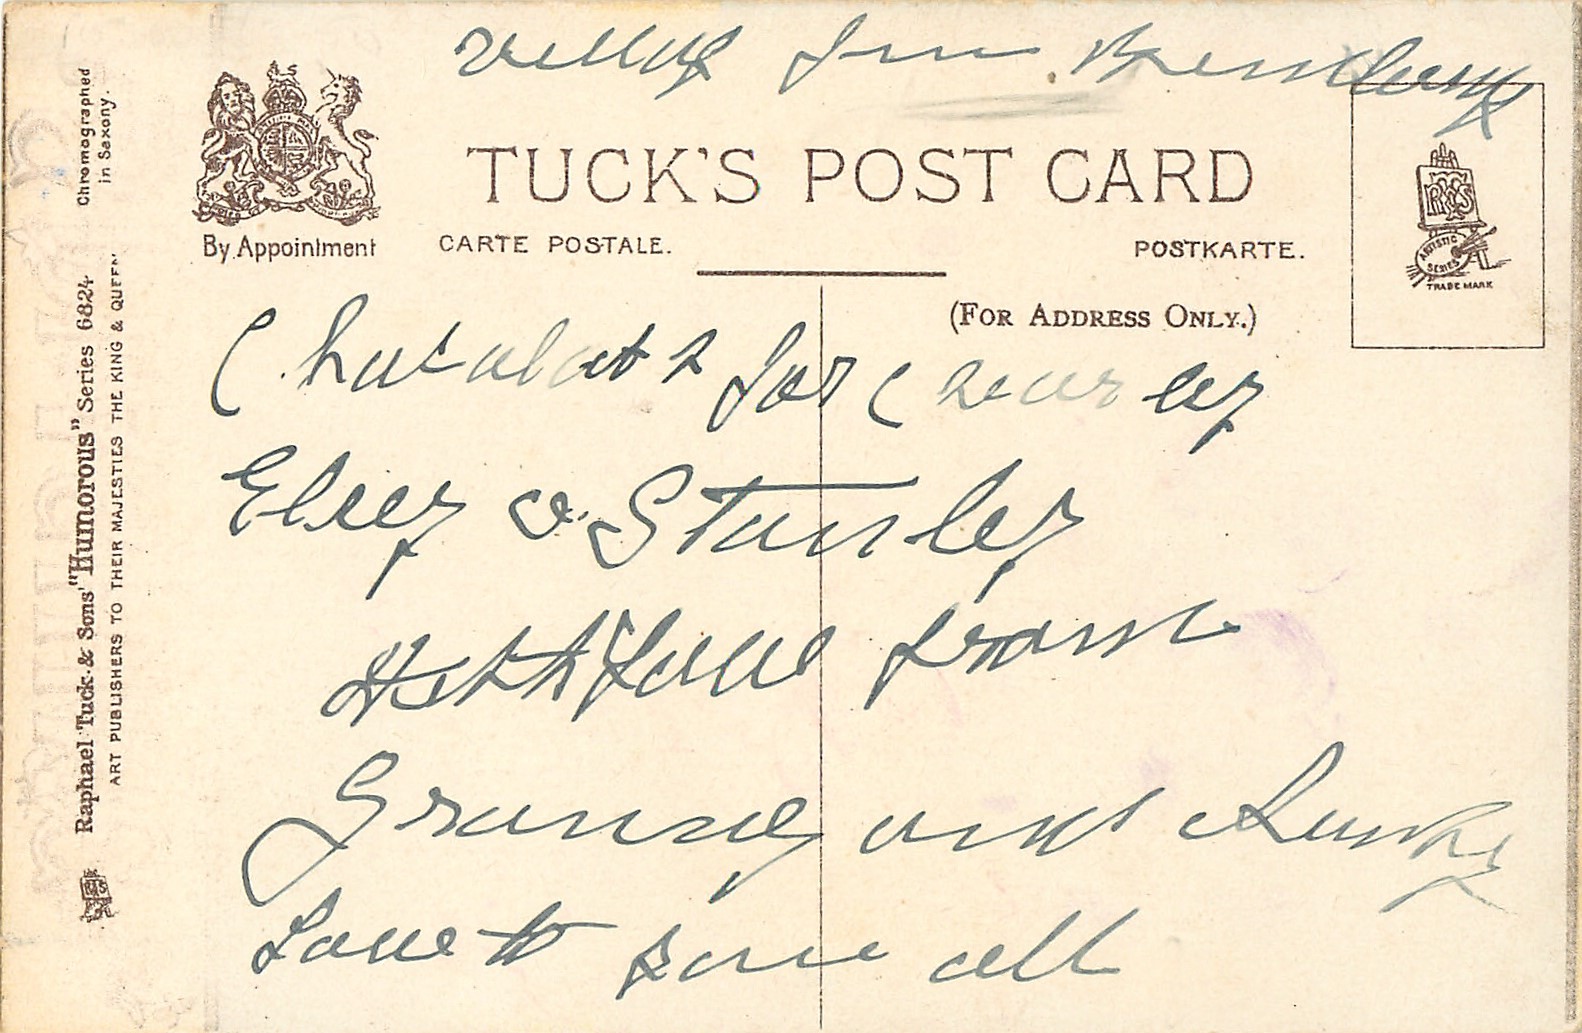 TUCK'S POST CARD
By Appointment
CARTE POSTALE.
POSTKARTE.
(FOR ADDRESS ONLY.)
TRADE MARK
ARTISTIC SERIES
for
Elsey & Stanley
love from
Granny and Aunty
Love to you all
Raphael Tuck & Sons' "Humorous" Series 6824
ART PUBLISHERS TO THEIR MAJESTIES THE KING & QUEEN
Chromographed
in Saxony.